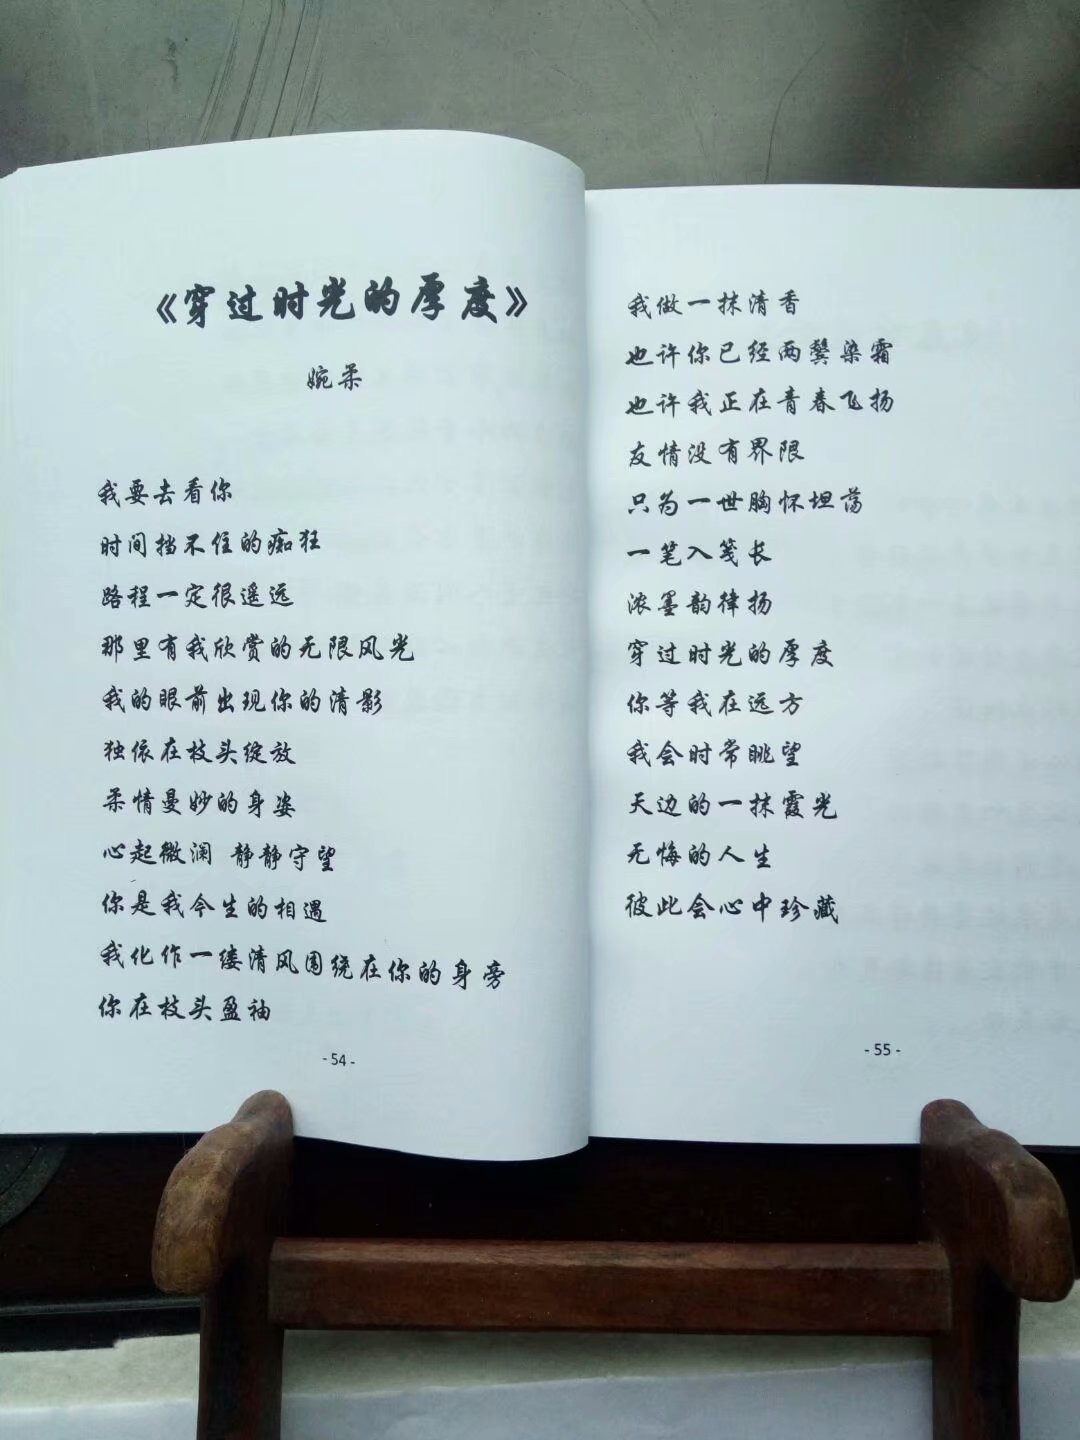 《穿过时光的厚度》
婉柔
我要去看你
时间挡不住的痴狂
路程一定很遥远
那里有我欣赏的无限风光
我的眼前出现你的清影
独依在枝头绽放
柔情曼妙的身姿
心起微澜 静静守望
你是我今生的相遇
我化作一缕清风围绕在你的身旁
你在枝头盈袖
- 54 -
我做一抹清香
也许你已经两鬓染霜
也许我正在青春飞扬
友情没有界限
只为一世胸怀坦荡
一笔入笺长
浓墨韵律扬
穿过时光的厚度
你等我在远方
我会时常眺望
天边的一抹霞光
无悔的人生
彼此会心中珍藏
- 55 -